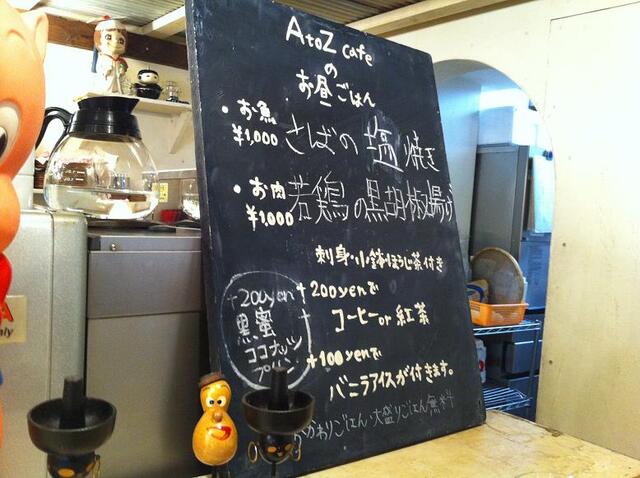 AtoZ cafe
の
お昼ごはん
・お魚
¥1,000
さばの塩焼き
・お肉
¥1,000
若鶏の黒胡椒揚げ
刺身・小鉢・ほうじ茶付き
+200yenで
コーヒー or 紅茶
+100yenで
バニラアイスが付きます。
+200yen
黒蜜
ココナッツ
プリン
おかわりごはん・大盛りごはん無料